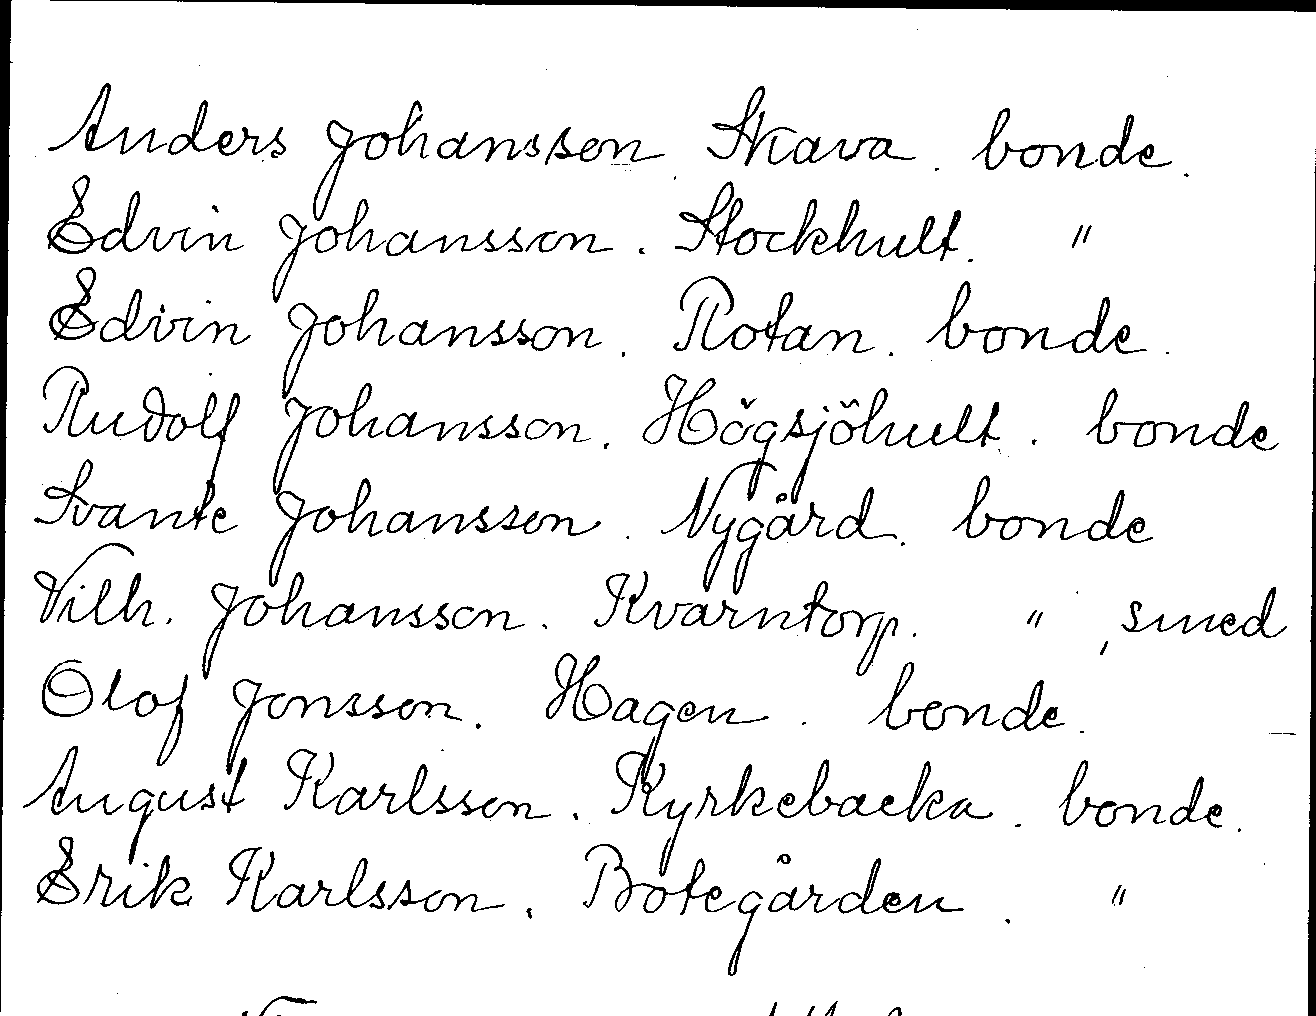 Anders Johansson. Skava. bonde.
Edvin Johansson. Stockhult. "
Edvin Johansson. Rotan. bonde.
Rudolf Johansson. Högsjöhult. bonde
Svante Johansson. Nygård. bonde
Vilh. Johansson. Kvarntorp. " , smed
Olof Jonsson. Hagen. bonde.
August Karlsson. Kyrkebacka. bonde.
Erik Karlsson. Botegården. "